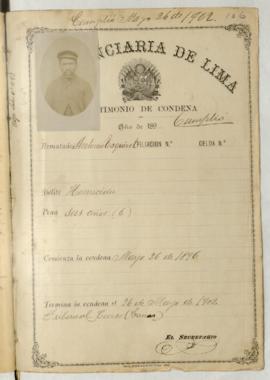 Cumplió Mayo 26 de 1902.
NCIARIA DE LIMA
TIMONIO DE CONDENA
Año de 189
Cumplió
Rematado FILIACION N.° CELDA N.°
Delito Homicidio
Pena seis años (6)
Comienza la condena Mayo 26 de 1896
Termina la condena el 26 de Mayo de 1902
Tribunal
EL SECRETARIO